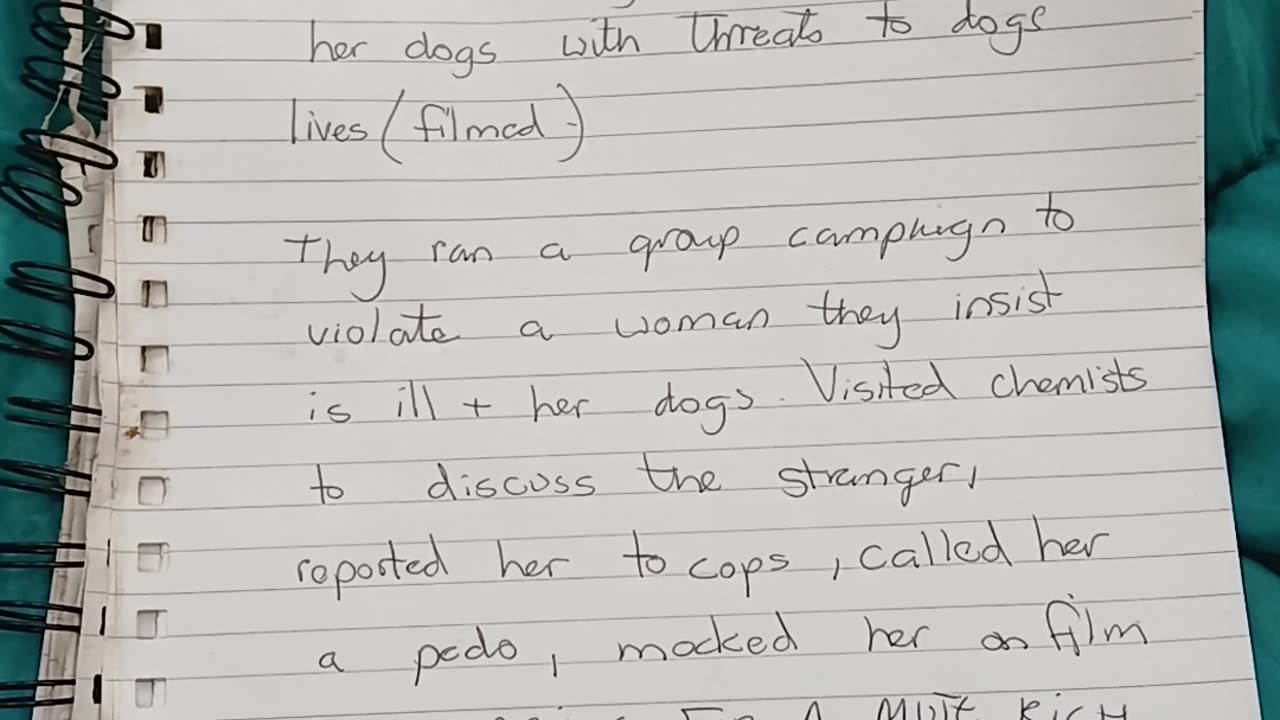 her dogs with threats to dogs
lives (filmed)
They ran a group camphign to
violate a woman they insist
is ill + her dogs. Visited chemists
to discuss the stranger,
reported her to cops, called her
a pedo, mocked her on film